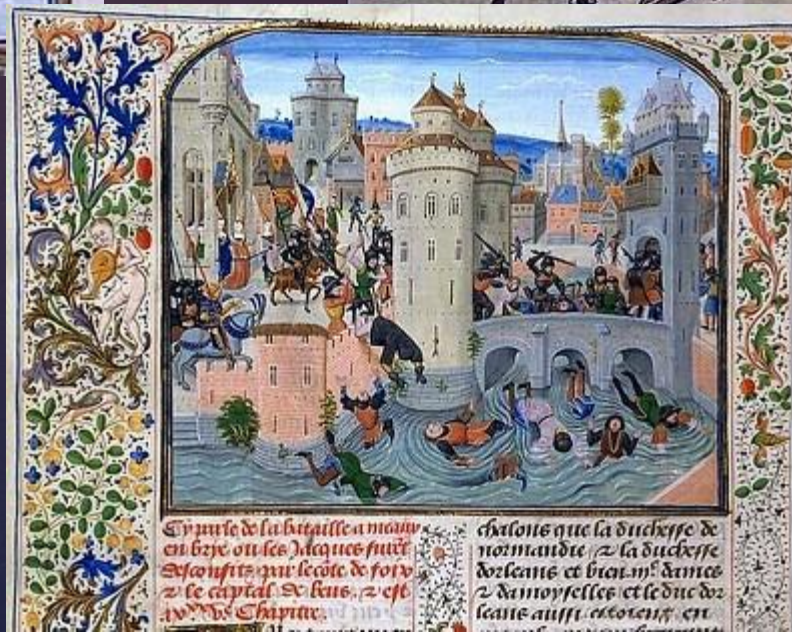 Cy parle de la bataille a meaux
en brye ou les Jacques furẽt
desconfits par le cõte de foix
⁊ le captal de beus. ⁊ est
Chapitre.
chalons que la duchesse de
normandie ⁊ la duchesse
dorleans et bien .iiiᶜ. dames
⁊ damoyselles et le duc dor
leans aussi estoient en